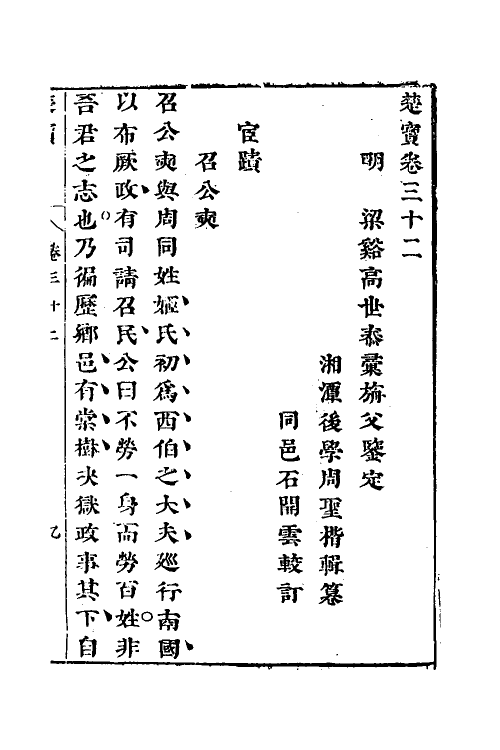 楚寶卷三十二
明　梁谿高世泰彙旃父鑒定
湘潭後學周聖楷輯纂
同邑石開雲較訂
宦蹟
召公奭
召公奭與周同姓姬氏初爲西伯之大夫廵行南國
以布厥政有司請召民公曰不勞一身而勞百姓非
吾君之志也乃徧歷鄉邑有棠樹決獄政事其下自
卷三十二